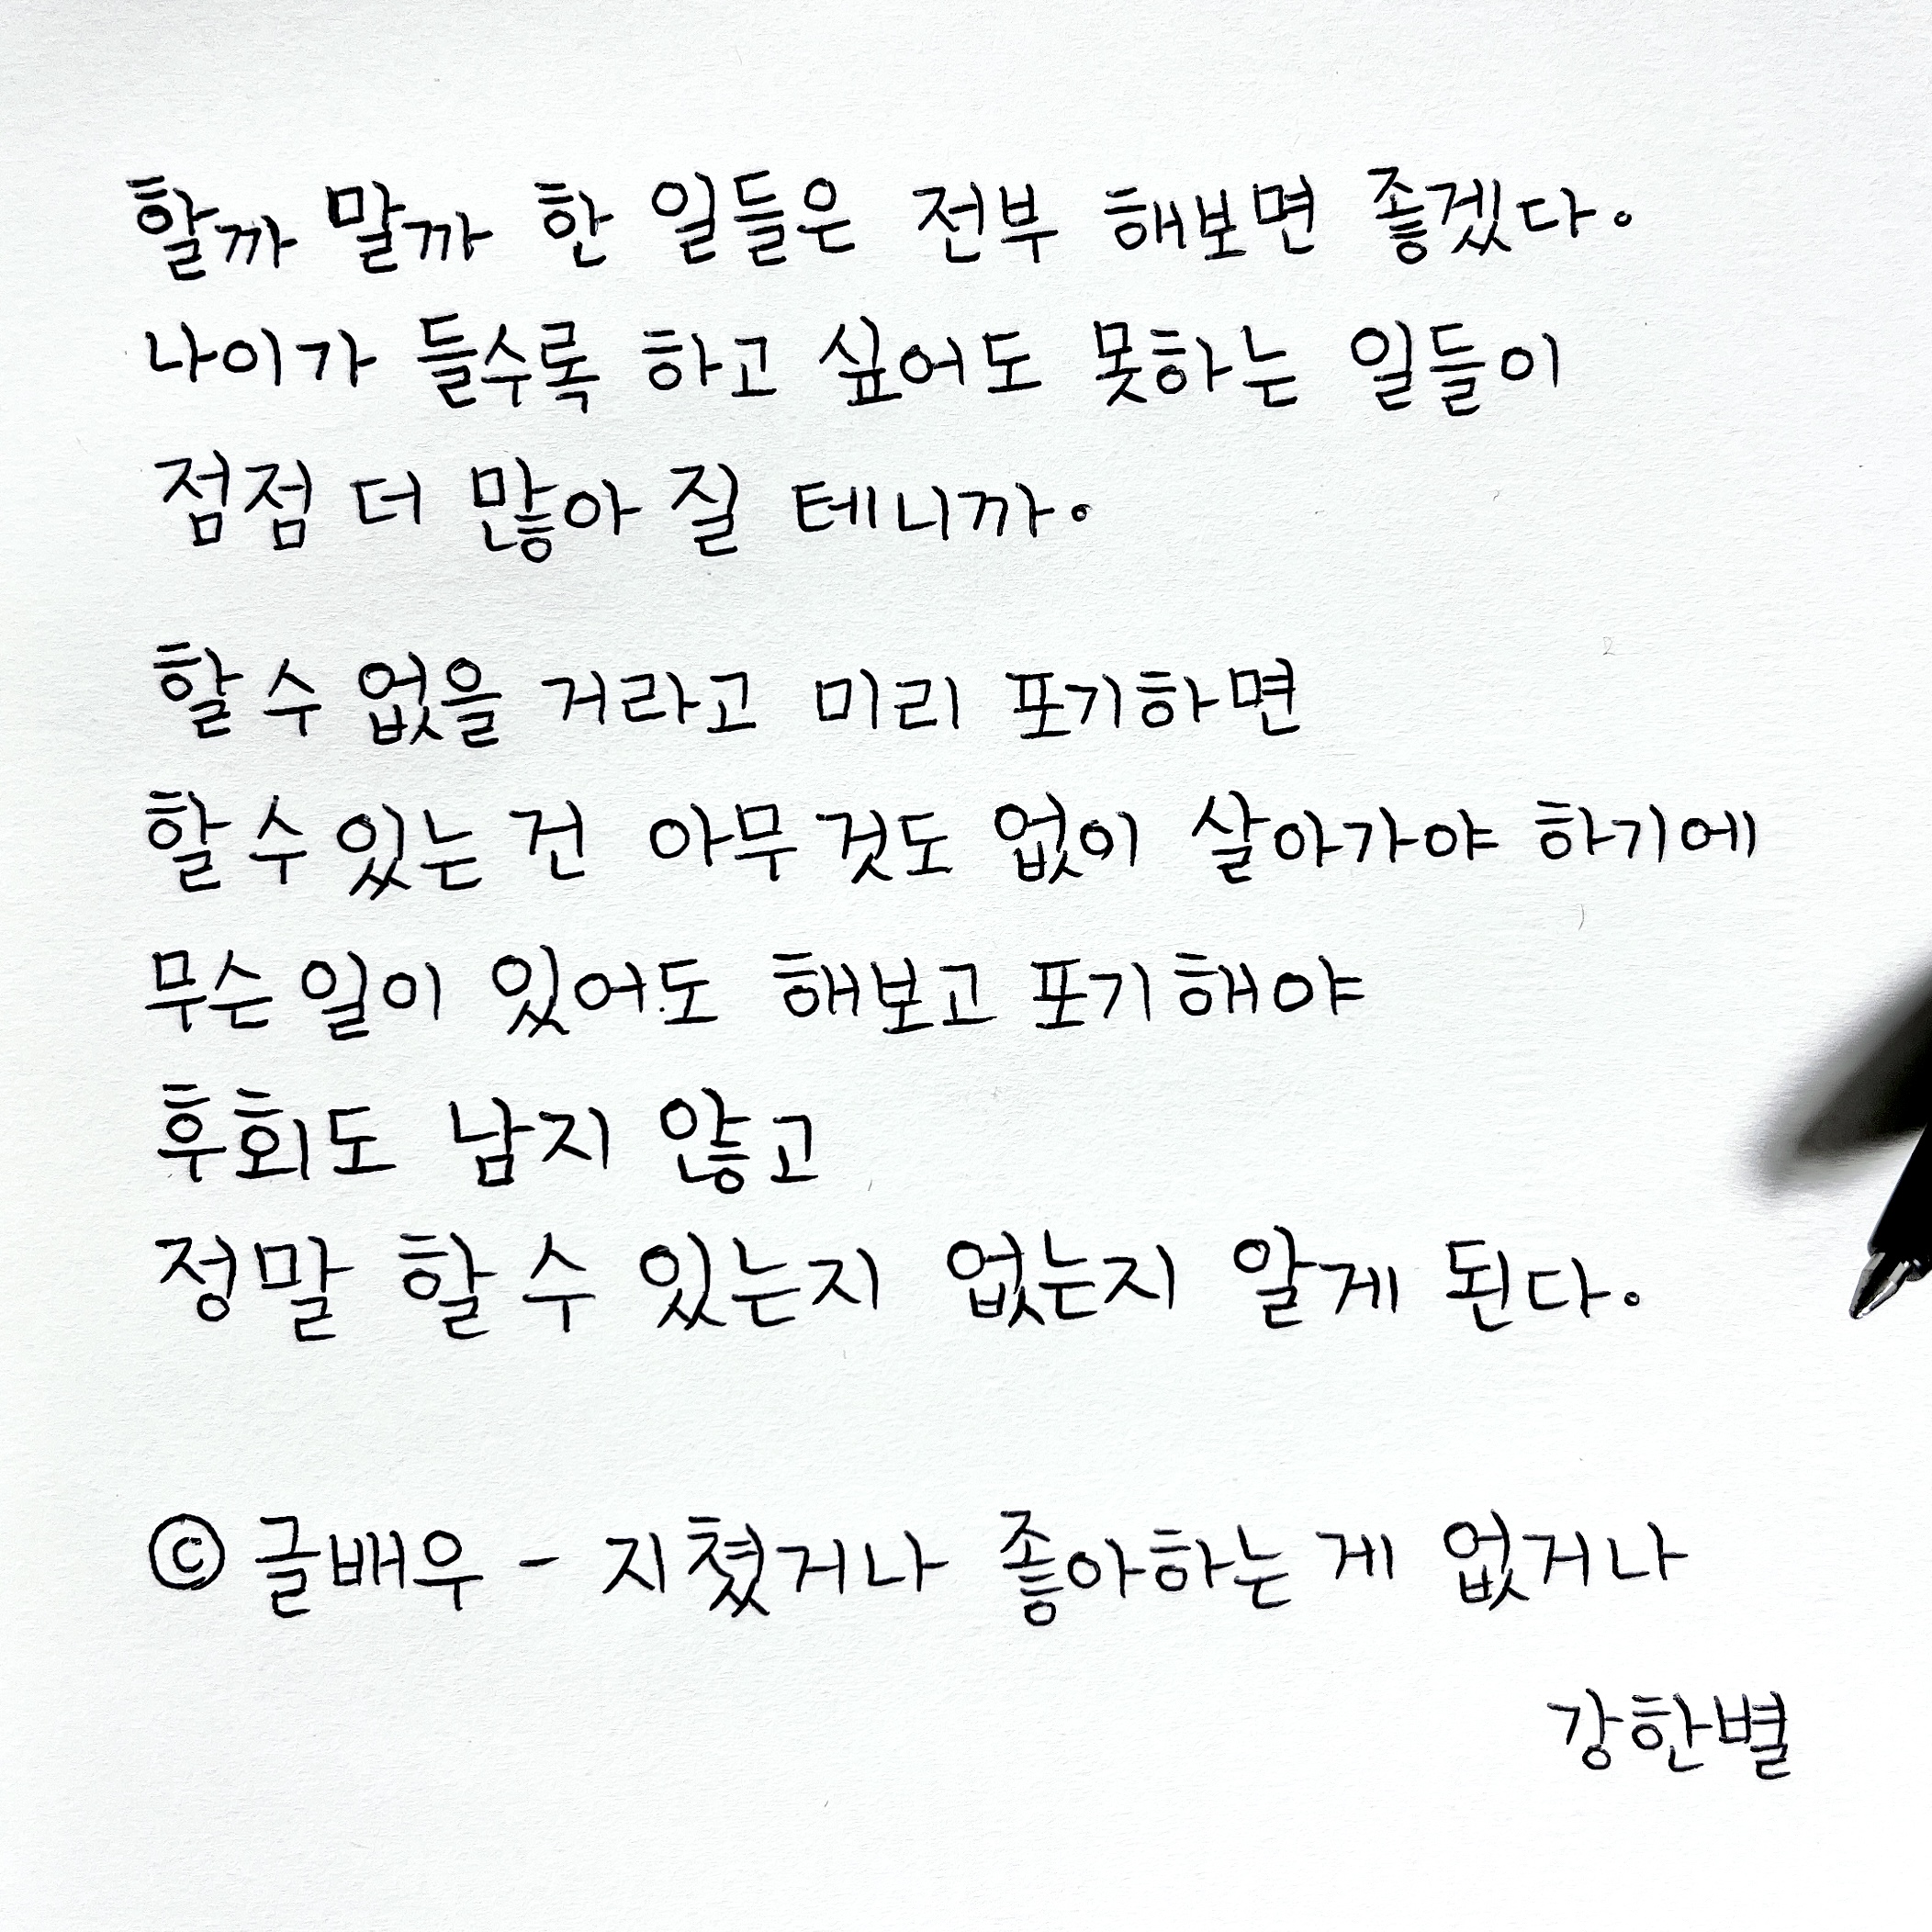 할까 말까 한 일들은 전부 해보면 좋겠다.
나이가 들수록 하고 싶어도 못하는 일들이
점점 더 많아 질 테니까.
할 수 없을 거라고 미리 포기하면
할 수 있는 건 아무것도 없이 살아가야 하기에
무슨 일이 있어도 해보고 포기해야
후회도 남지 않고
정말 할 수 있는지 없는지 알게 된다.
© 글배우 - 지쳤거나 좋아하는 게 없거나
강한별